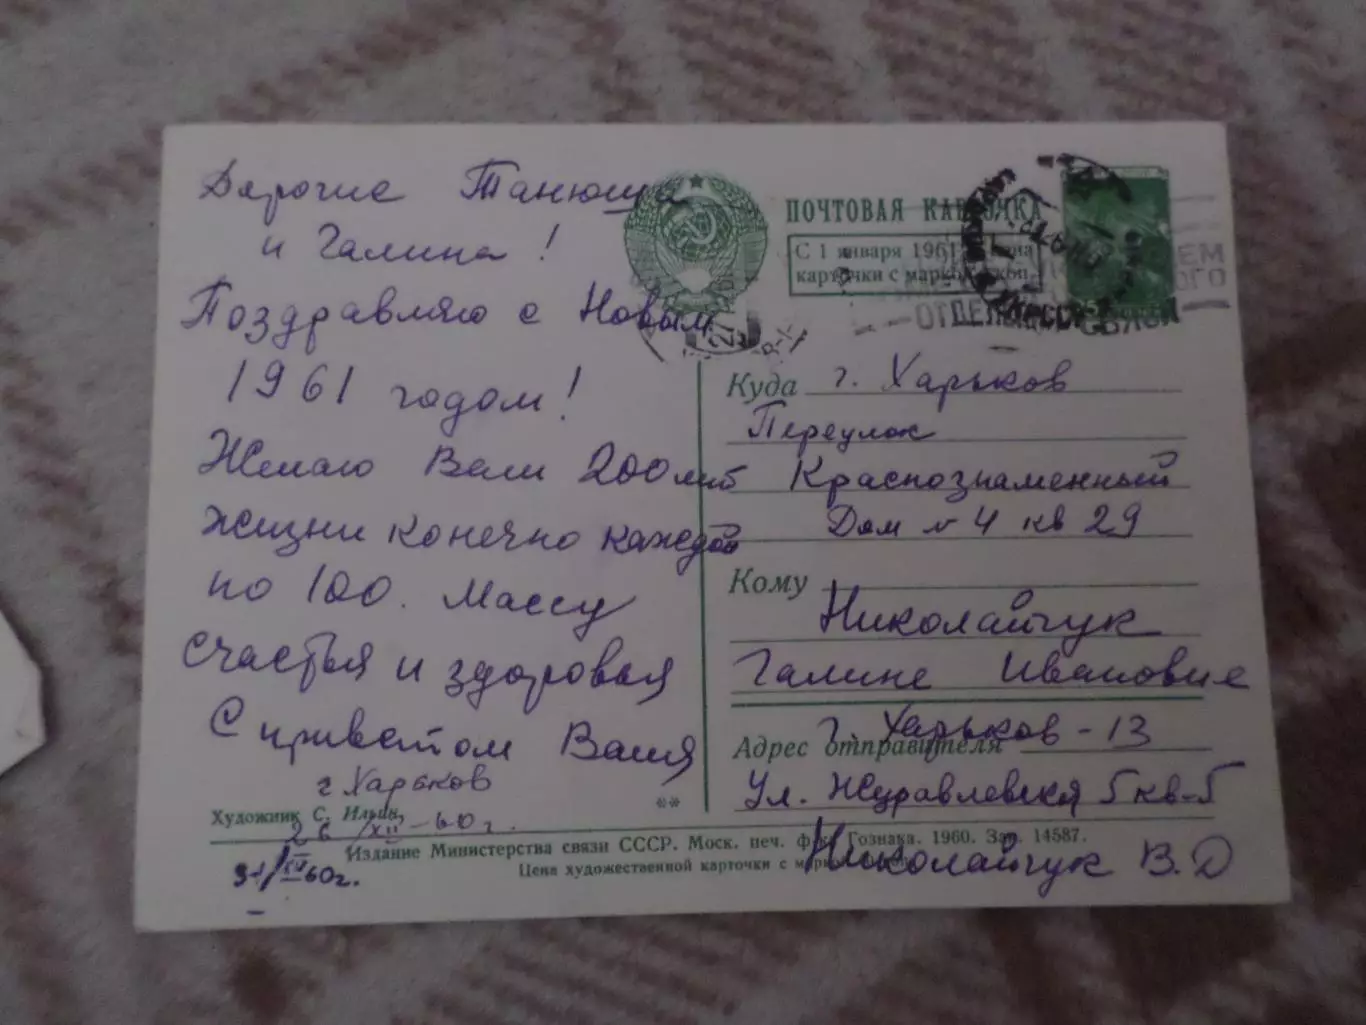 Дарогие Танюша
и Галина!
Поздравляю с Новым
1961 годом!
Желаю Вам 200 лет
жизни конечно каждой
по 100. Массу
счастья и здоровья
С приветом Ваня
г Харьков
26/XII-60 г.
60г.
Художник С. Ильин,
**
Издание Министерства связи СССР. Моск. печ. ф-ка Гознака. 1960. Зак. 14587.
Цена художественной карточки с маркой
ПОЧТОВАЯ КАРТОЧКА
С 1 января 1961 г. цена
карточки с маркой коп.
ОТДЕЛЕНИЕ СВЯЗИ
Куда г. Харьков
Переулок
Краснознаменный
Дом N 4 кв 29
Кому
Николайчук
Галине Ивановне
Адрес отправителя г. Харьков-13
Ул. Журавлевская 5 кв-5
Николайчук В.Д